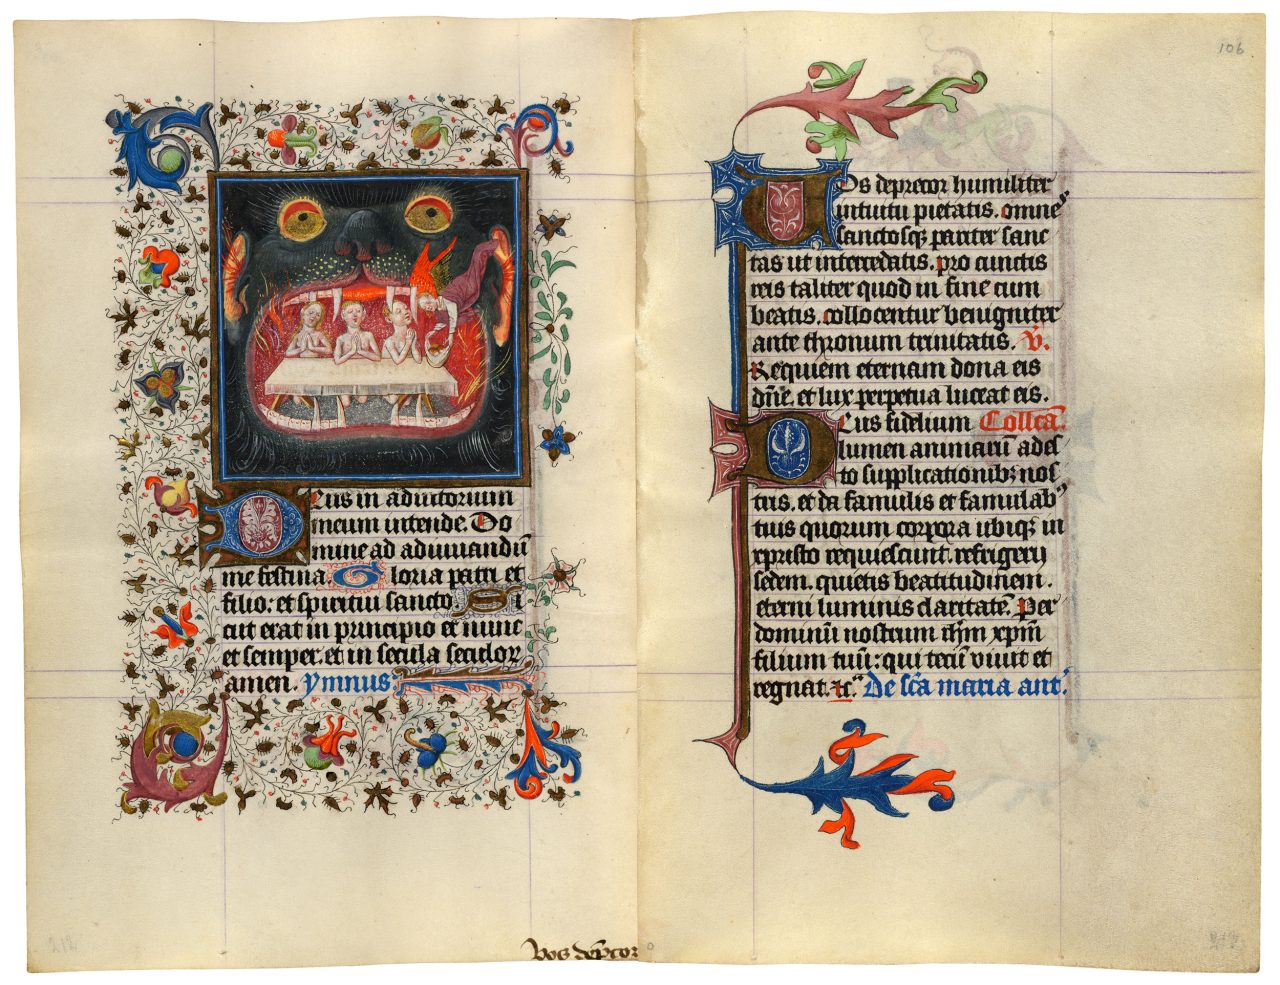 Deus in adiutorium
meum intende. Do
mine ad adiuuandū
me festina. Gloria patri et
filio: et spiritui sancto. Si
cut erat in principio et nunc
et semper. et in secula seculoꝝ
amen. ymnus
Vos dep̄cor
106
Uos deprecor humiliter
intuitu pietatis. omneꝰ
sanctosqꝫ pariter sanc
tas ut intercedatis. pro cunctis
reis taliter quod in fine cum
beatis. collocentur benigniter
ante thronum trinitatis. V̄.
Requiem eternam dona eis
dn̄e. et lux perpetua luceat eis.
Deus fidelium Collc̄a.
lumen animarū ades
to supplicationibꝫ nos
tris. et da famulis et famulabꝰ
tuis quorum corpora ubiqꝫ in
xpristo requiescunt. refrigerij
sedem. quietis beatitudinem.
eterni luminis claritatē. Per
dominū nostrum ihm̄ xpm̄
filium tuū: qui tecū viuit et
regnat. ⁊c̄. De sc̄a maria ant.